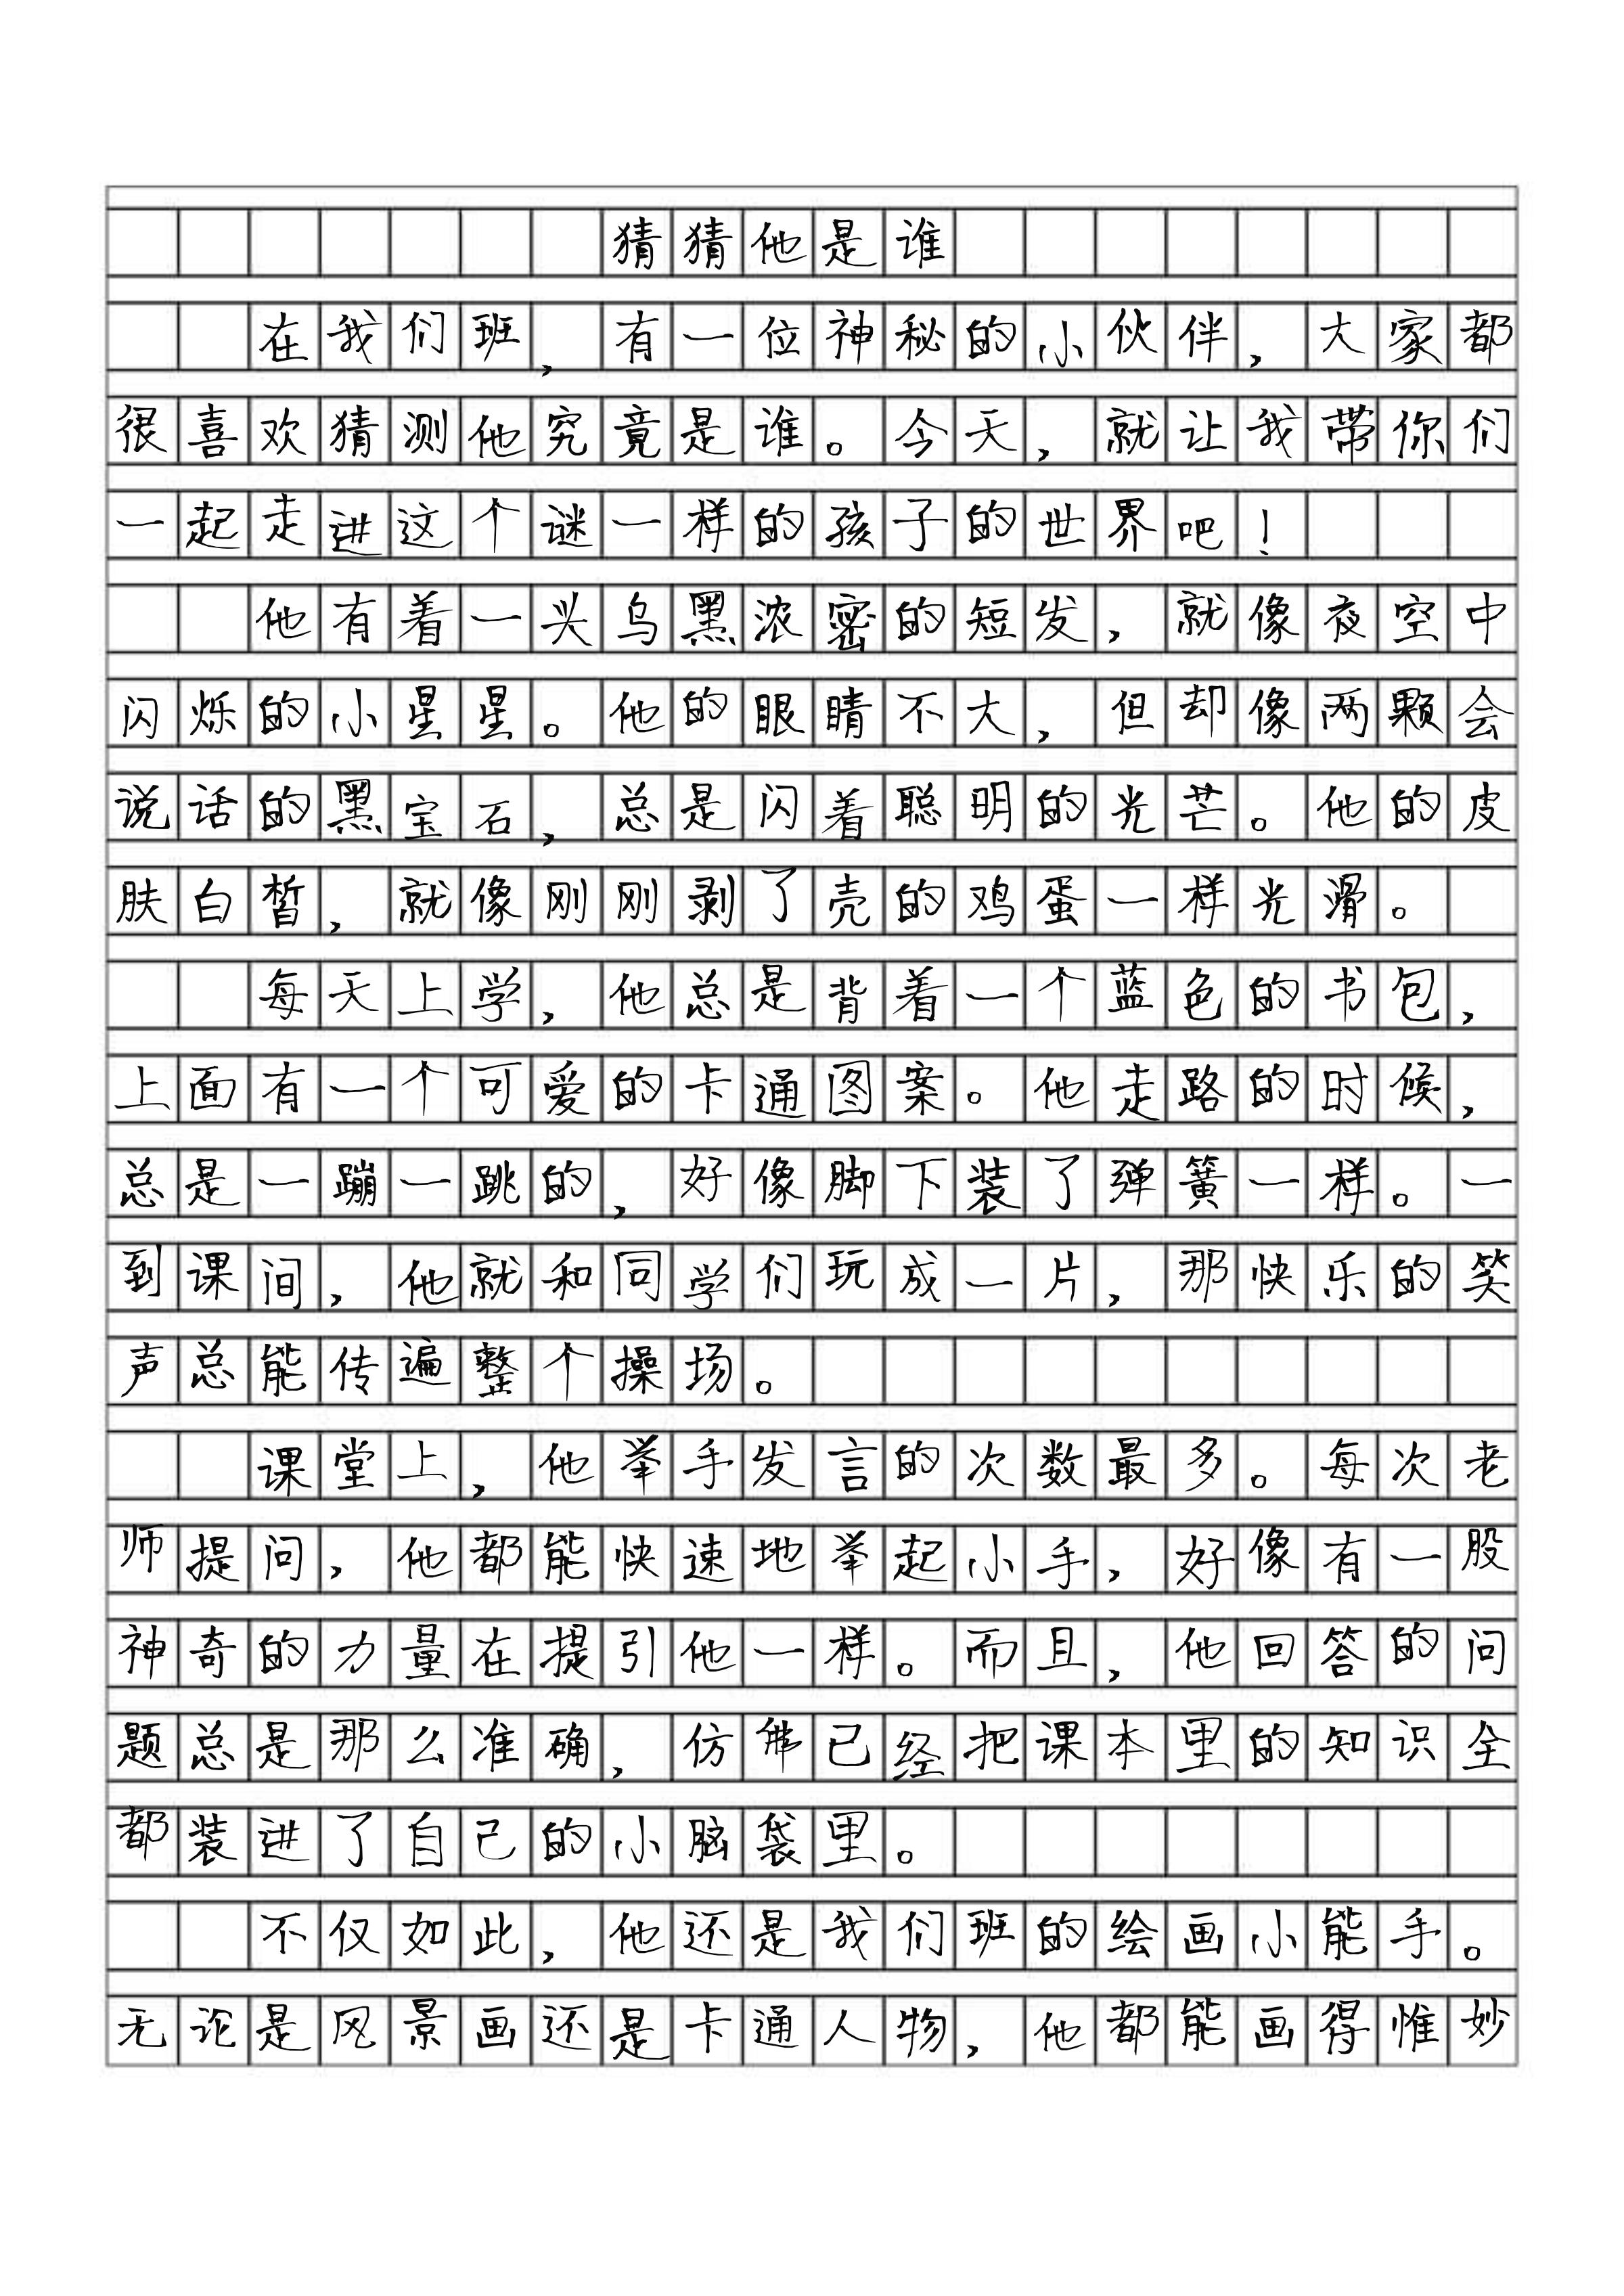 猜猜他是谁
在我们班，有一位神秘的小伙伴，大家都
很喜欢猜测他究竟是谁。今天，就让我带你们
一起走进这个谜一样的孩子的世界吧！
他有着一头乌黑浓密的短发，就像夜空中
闪烁的小星星。他的眼睛不大，但却像两颗会
说话的黑宝石，总是闪着聪明的光芒。他的皮
肤白皙，就像刚刚剥了壳的鸡蛋一样光滑。
每天上学，他总是背着一个蓝色的书包，
上面有一个可爱的卡通图案。他走路的时候，
总是一蹦一跳的，好像脚下装了弹簧一样。一
到课间，他就和同学们玩成一片，那快乐的笑
声总能传遍整个操场。
课堂上，他举手发言的次数最多。每次老
师提问，他都能快速地举起小手，好像有一股
神奇的力量在提引他一样。而且，他回答的问
题总是那么准确，仿佛已经把课本里的知识全
都装进了自己的小脑袋里。
不仅如此，他还是我们班的绘画小能手。
无论是风景画还是卡通人物，他都能画得惟妙